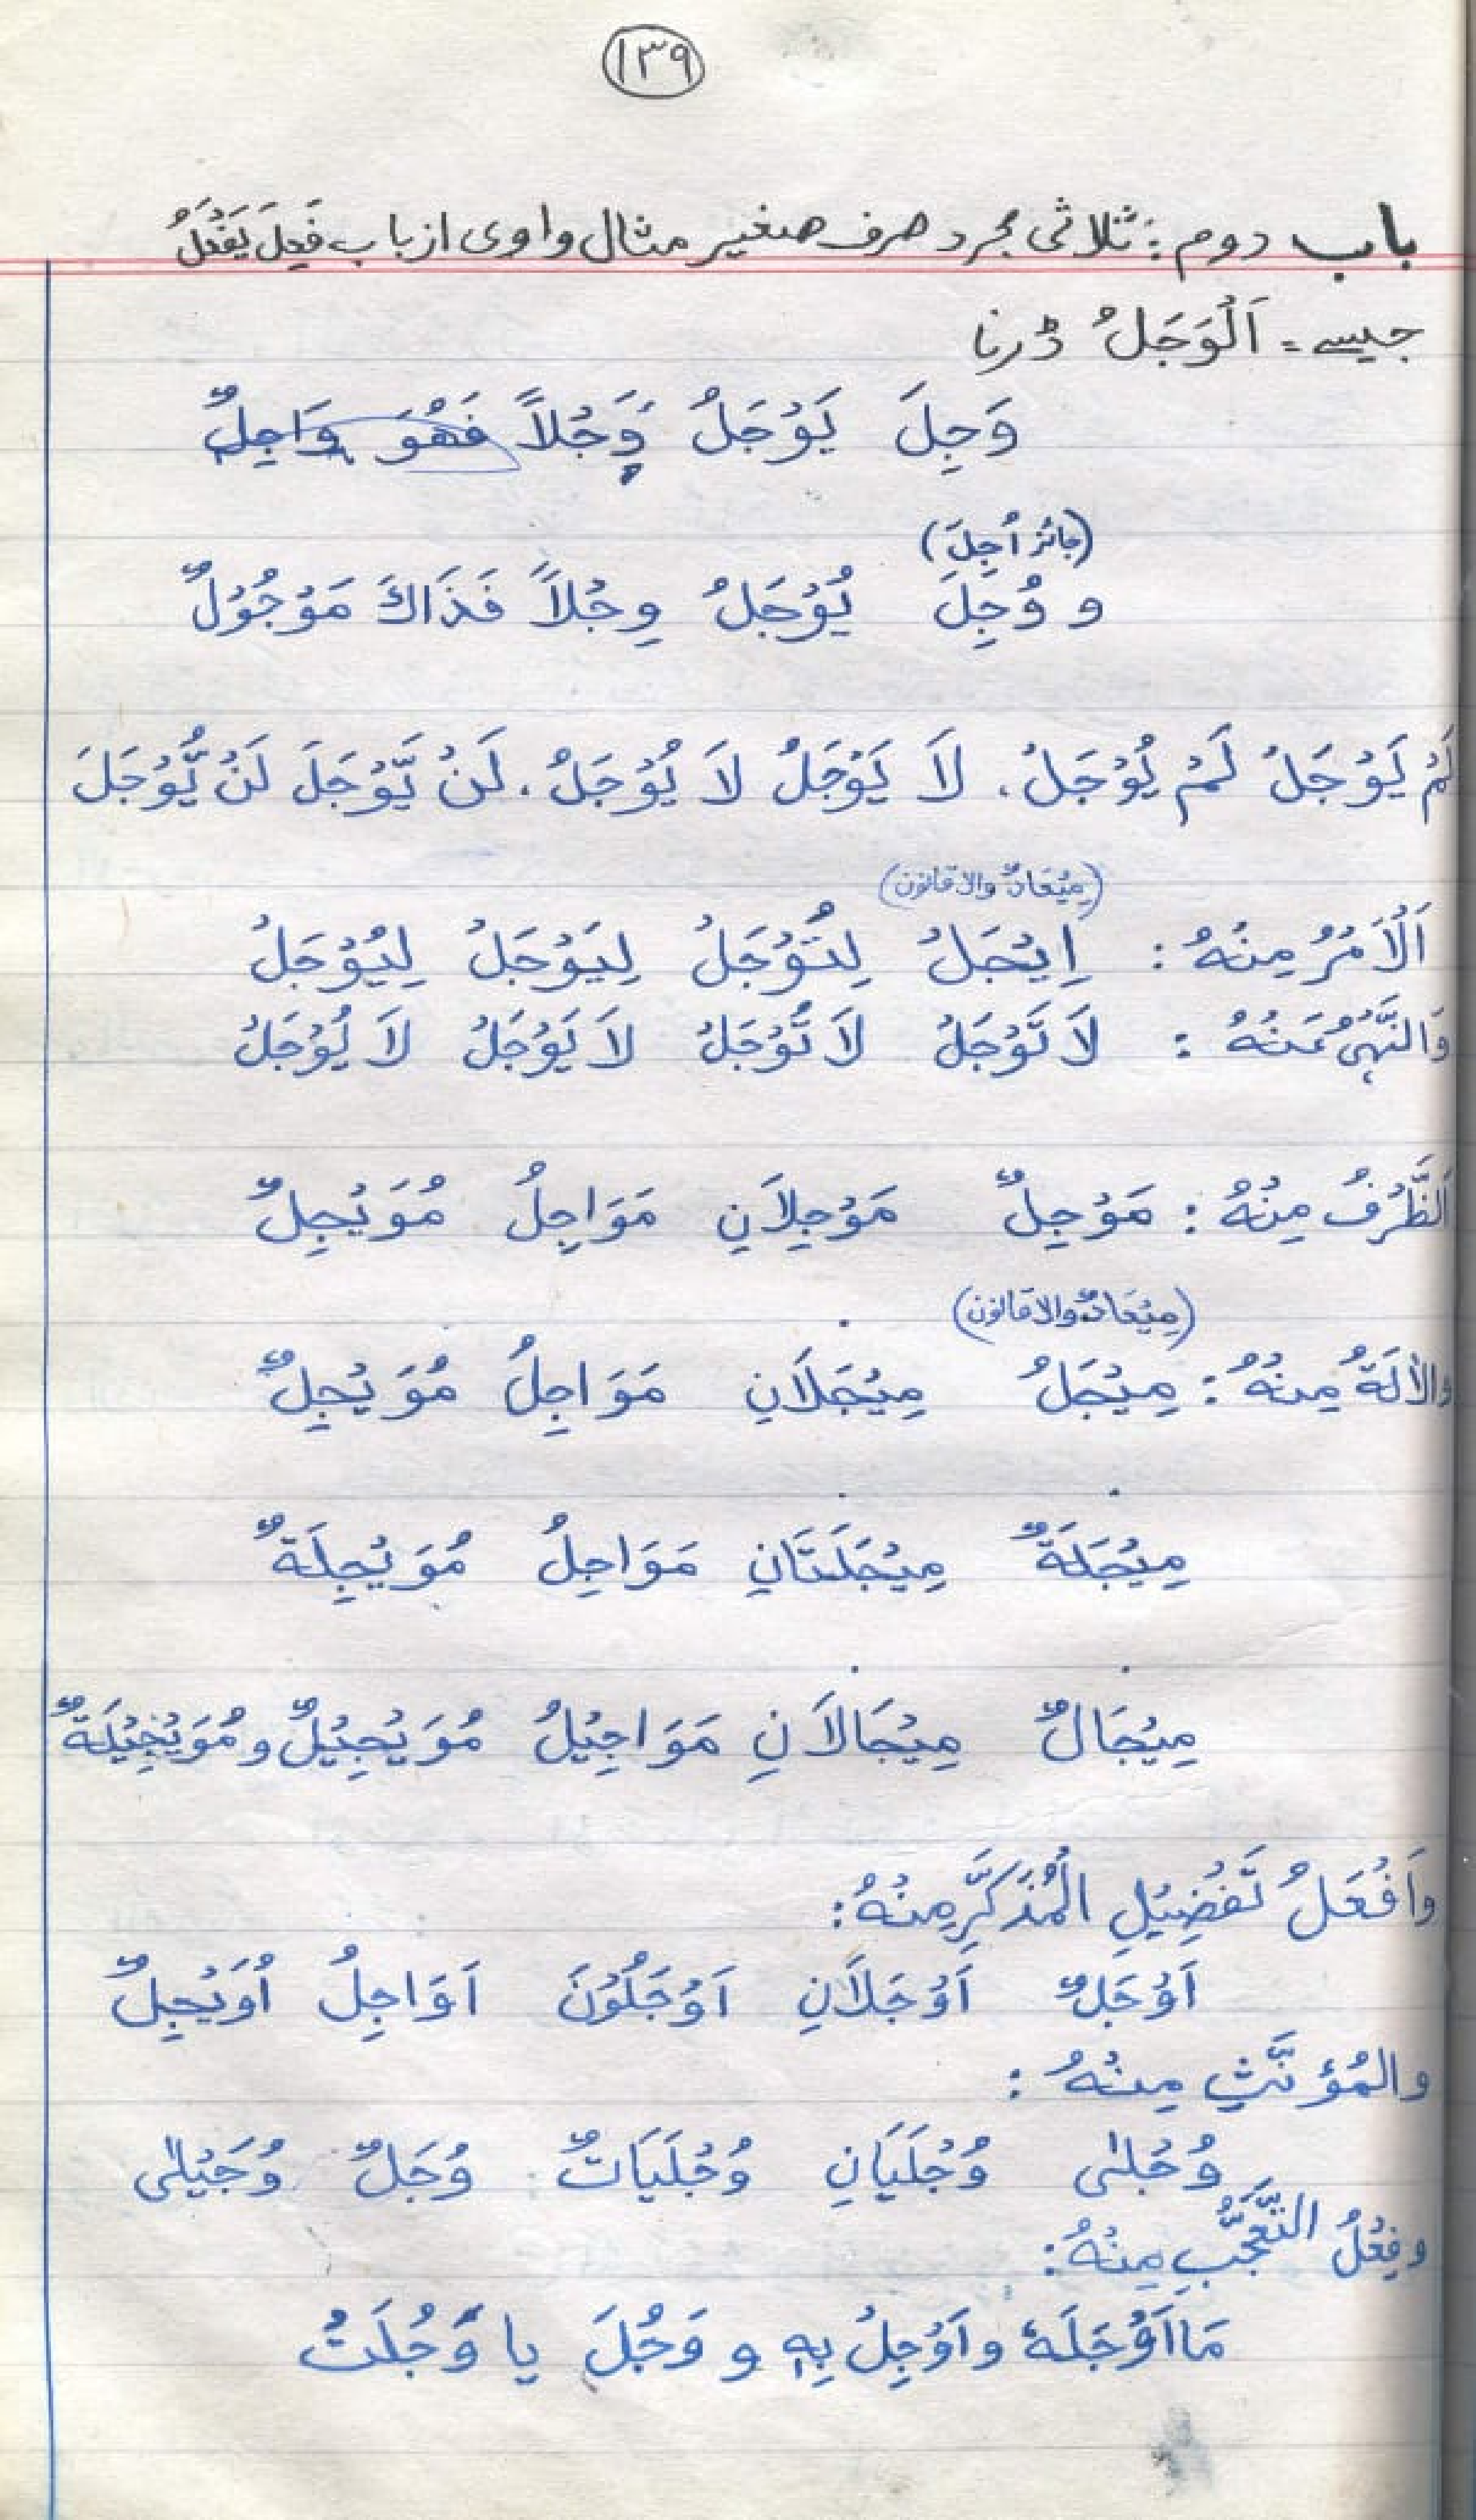 ١٣٩
باب دوم: ثلاثی مجرد صرف صغیر مثال واوی از باب فَعِلَ یَفْعَلُ
جیسے = اَلْوَجَلُ ڈرنا
وَجِلَ يَوْجَلُ وَجْلاً فَهُوَ وَاجِلٌ
(جائز اُجِلَ)
و وُجِلَ يُوْجَلُ وِجْلاً فَذَاكَ مَوْجُوْلٌ
لَمْ يَوْجَلْ لَمْ يُوْجَلْ. لَا يَوْجَلُ لَا يُوْجَلُ. لَنْ يَّوْجَلَ لَنْ يُّوْجَلَ
(مِیْعَادٌ والا قانون)
اَلْاَمْرُ مِنْهُ: اِيْجَلْ لِتُوْجَلْ لِيَوْجَلْ لِيُوْجَلْ
وَالنَّهْىُ عَنْهُ: لَا تَوْجَلْ لَا تُوْجَلْ لَا يَوْجَلْ لَا يُوْجَلْ
اَلظَّرْفُ مِنْهُ: مَوْجِلٌ مَوْجِلَانِ مَوَاجِلُ مُوَيْجِلٌ
(مِیْعَادٌ والا قانون)
والْاٰلَةُ مِنْهُ: مِيْجَلٌ مِيْجَلَانِ مَوَاجِلُ مُوَيْجِلٌ
مِيْجَلَةٌ مِيْجَلَتَانِ مَوَاجِلُ مُوَيْجِلَةٌ
مِيْجَالٌ مِيْجَالَانِ مَوَاجِيْلُ مُوَيْجِيْلٌ و مُوَيْجِيْلَةٌ
وَاَفْعَلُ تَفْضِيْلِ الْمُذَكَّرِ مِنْهُ:
اَوْجَلٌ اَوْجَلَانِ اَوْجَلُوْنَ اَوَاجِلُ اُوَيْجِلٌ
والمُؤنَّثِ مِنْهُ:
وُجْلٰى وُجْلَيَانِ وُجْلَيَاتٌ وُجَلٌ وُجَيْلٰى
وفِعْلُ التَّعَجُّبِ مِنْهُ:
مَا اَوْجَلَهٗ و اَوْجِلْ بِهٖ و وَجُلَ یا وَجُلَتْ